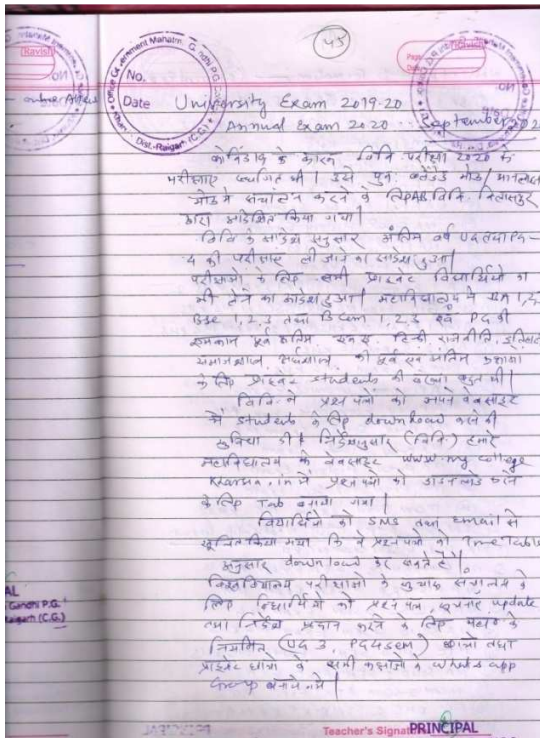 45
Ravish
No.
Date
University Exam 2019-20
Annual Exam 2020 September 202
कोविड19 के कारण विवि परीक्षा 2020 के
परीक्षाएं स्थगित थी। इसे पुनः ब्लेंडेड मोड/ऑनलाइन
मोड में संचालन करने के लिए ABVविवि. बिलासपुर
द्वारा आदेशित किया गया।
विवि के आदेश अनुसार अंतिम वर्ष UG तथा PG-
4 की परीक्षाएं ली जाने का आदेश हुआ।
परीक्षाओं के लिए सभी प्राइवेट विद्यार्थियों का
भी लेने का आदेश हुआ। महाविद्यालय में 1,2,3
BSc 1,2,3 तथा BCom 1,2,3 एवं PG की
पूर्व अंतिम हिन्दी, राजनीति, इतिहास
समाजशास्त्र, अर्थशास्त्र, की पूर्व एवं अंतिम कक्षाओं
के लिए प्राइवेट students की संख्या बहुत थी।
विवि ने प्रश्न पत्रों को अपने वेबसाइट
में students के लिए download करने की
सुविधा दी। निर्देशानुसार (विवि) हमारे
महाविद्यालय के वेबसाइट www.my college
Kharsia.in में प्रश्न पत्रों को डाउनलोड करने
के लिए Tab बनाया गया।
विद्यार्थियों को SMS तथा Email से
सूचित किया गया कि वे प्रश्न पत्रों को Time Table
अनुसार download कर सकते हैं।
विश्वविद्यालय परीक्षाओं के सुचारू संचालन के
लिए विद्यार्थियों को प्रश्न पत्र, सूचनाएं update
तथा निर्देश प्रदान करने के लिए
नियमित (UG 3, PG4sem) छात्रों तथा
प्राइवेट छात्रों के सभी कक्षाओं के Whats app
Group बनाये गये।
AL
Gandhi P.G.
Raigarh (C.G.)
Teacher's Signat
PRINCIPAL